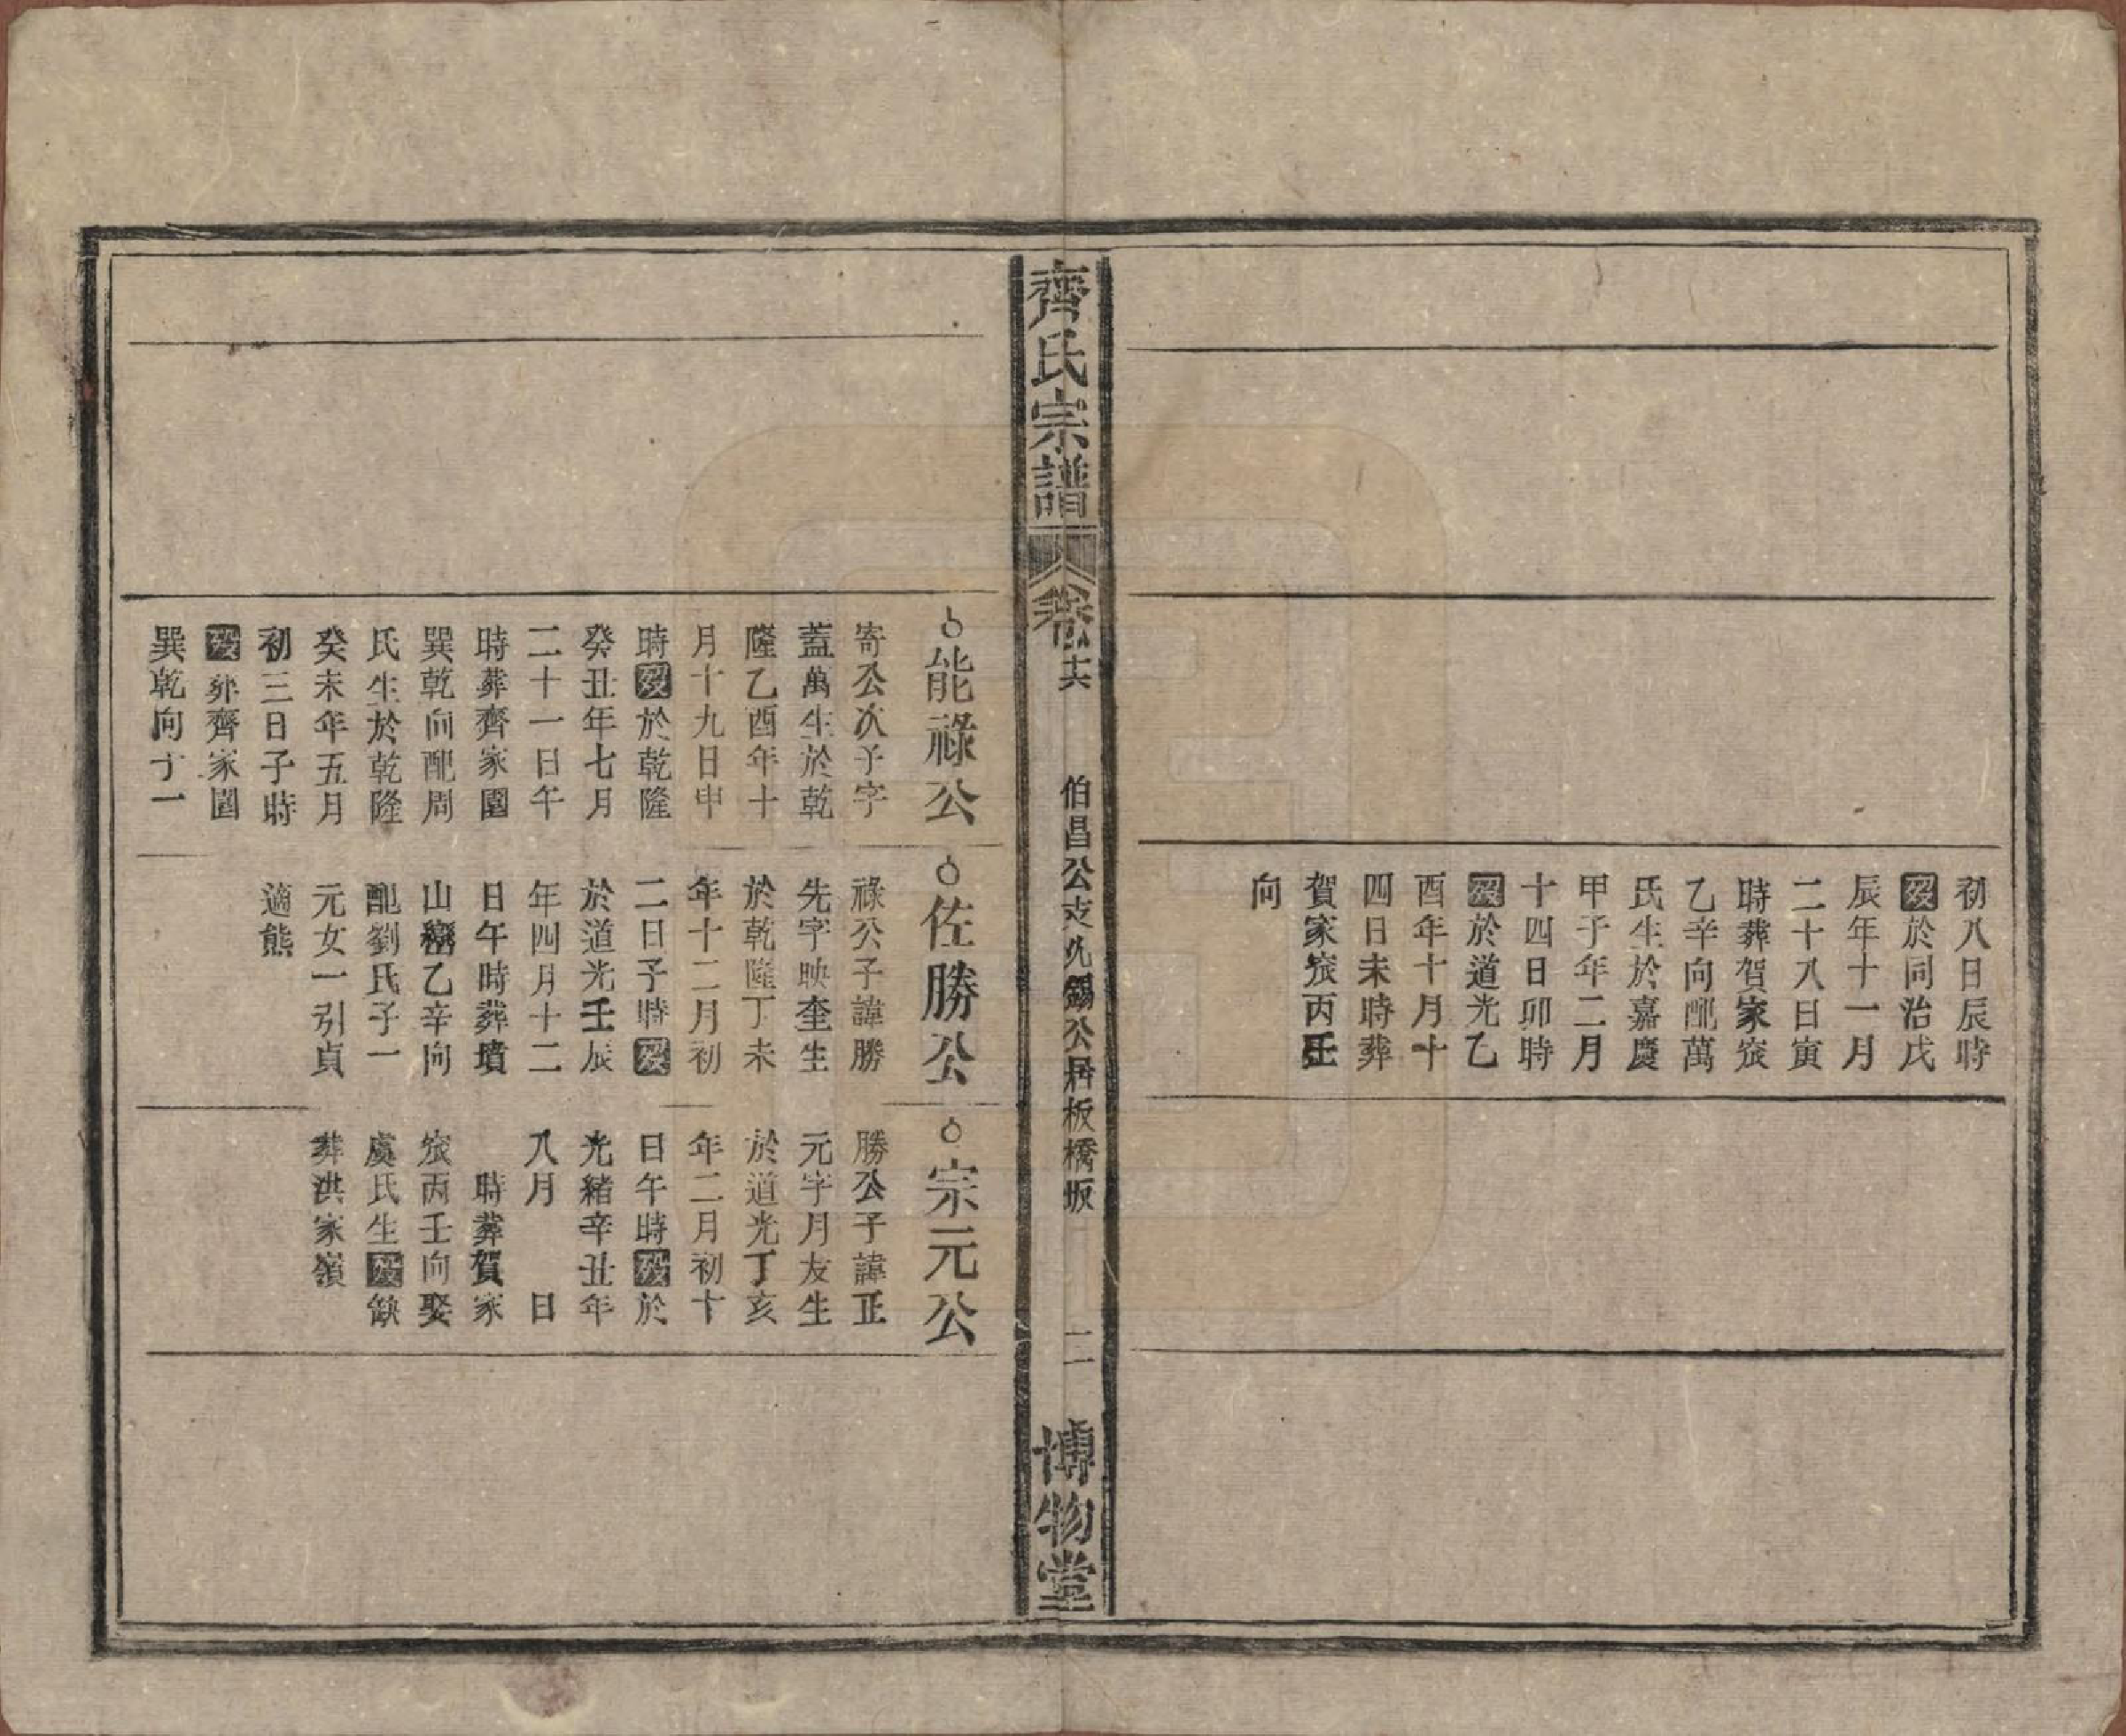 初八日辰時
歿於同治戊
辰年十一月
二十八日寅
時葬賀家㘭
乙辛向配萬
氏生於嘉慶
甲子年二月
十四日卯時
歿於道光乙
酉年十月十
四日未時葬
賀家㘭丙壬
向
齊氏宗譜
卷十六
伯昌公支九錫公居板橋坂
二
博物堂
能祿公
寄公次子字
蓋萬生於乾
隆乙酉年十
月十九日申
時歿於乾隆
癸丑年七月
二十一日午
時葬齊家園
巽乾向配周
氏生於乾隆
癸未年五月
初三日子時
歿葬齊家園
巽乾向子一
佐勝公
祿公子諱勝
先字映奎生
於乾隆丁未
年十二月初
二日子時歿
於道光壬辰
年四月十二
日午時葬墳
山乙辛向
配劉氏子一
元女一引貞
適熊
宗元公
勝公子諱正
元字月友生
於道光丁亥
年二月初十
日午時歿於
光緒辛丑年
八月　　日
時葬賀家
㘭丙壬向娶
虞氏生歿缺
葬洪家嶺